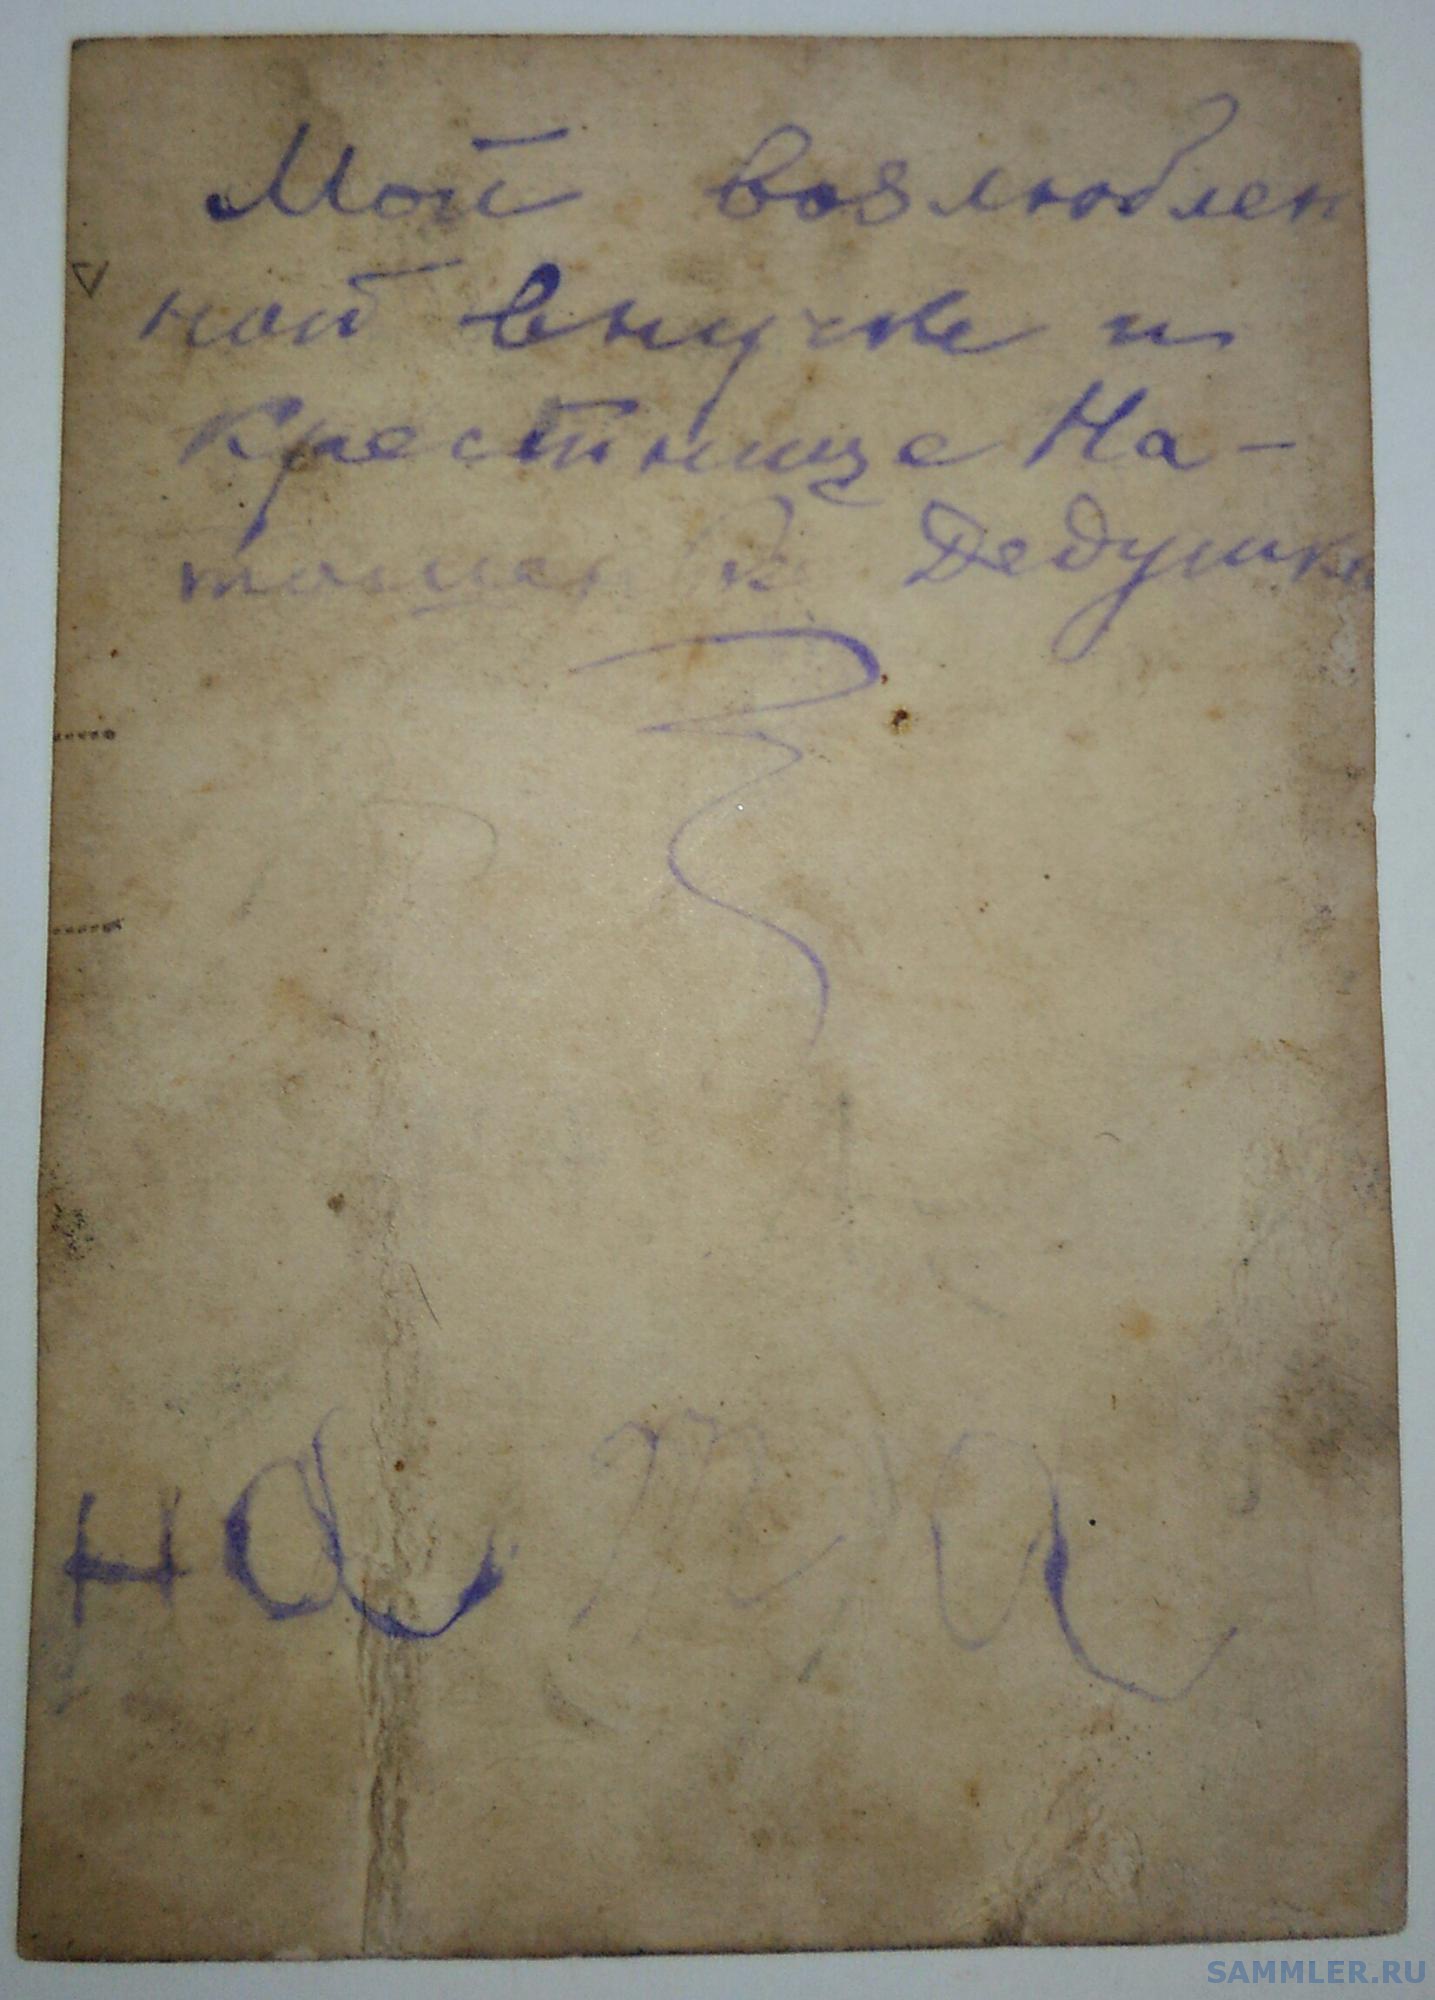 Мой возлюблен
ной внучке и
крестнице На-
Дедушка
на та
SAMMLER.RU